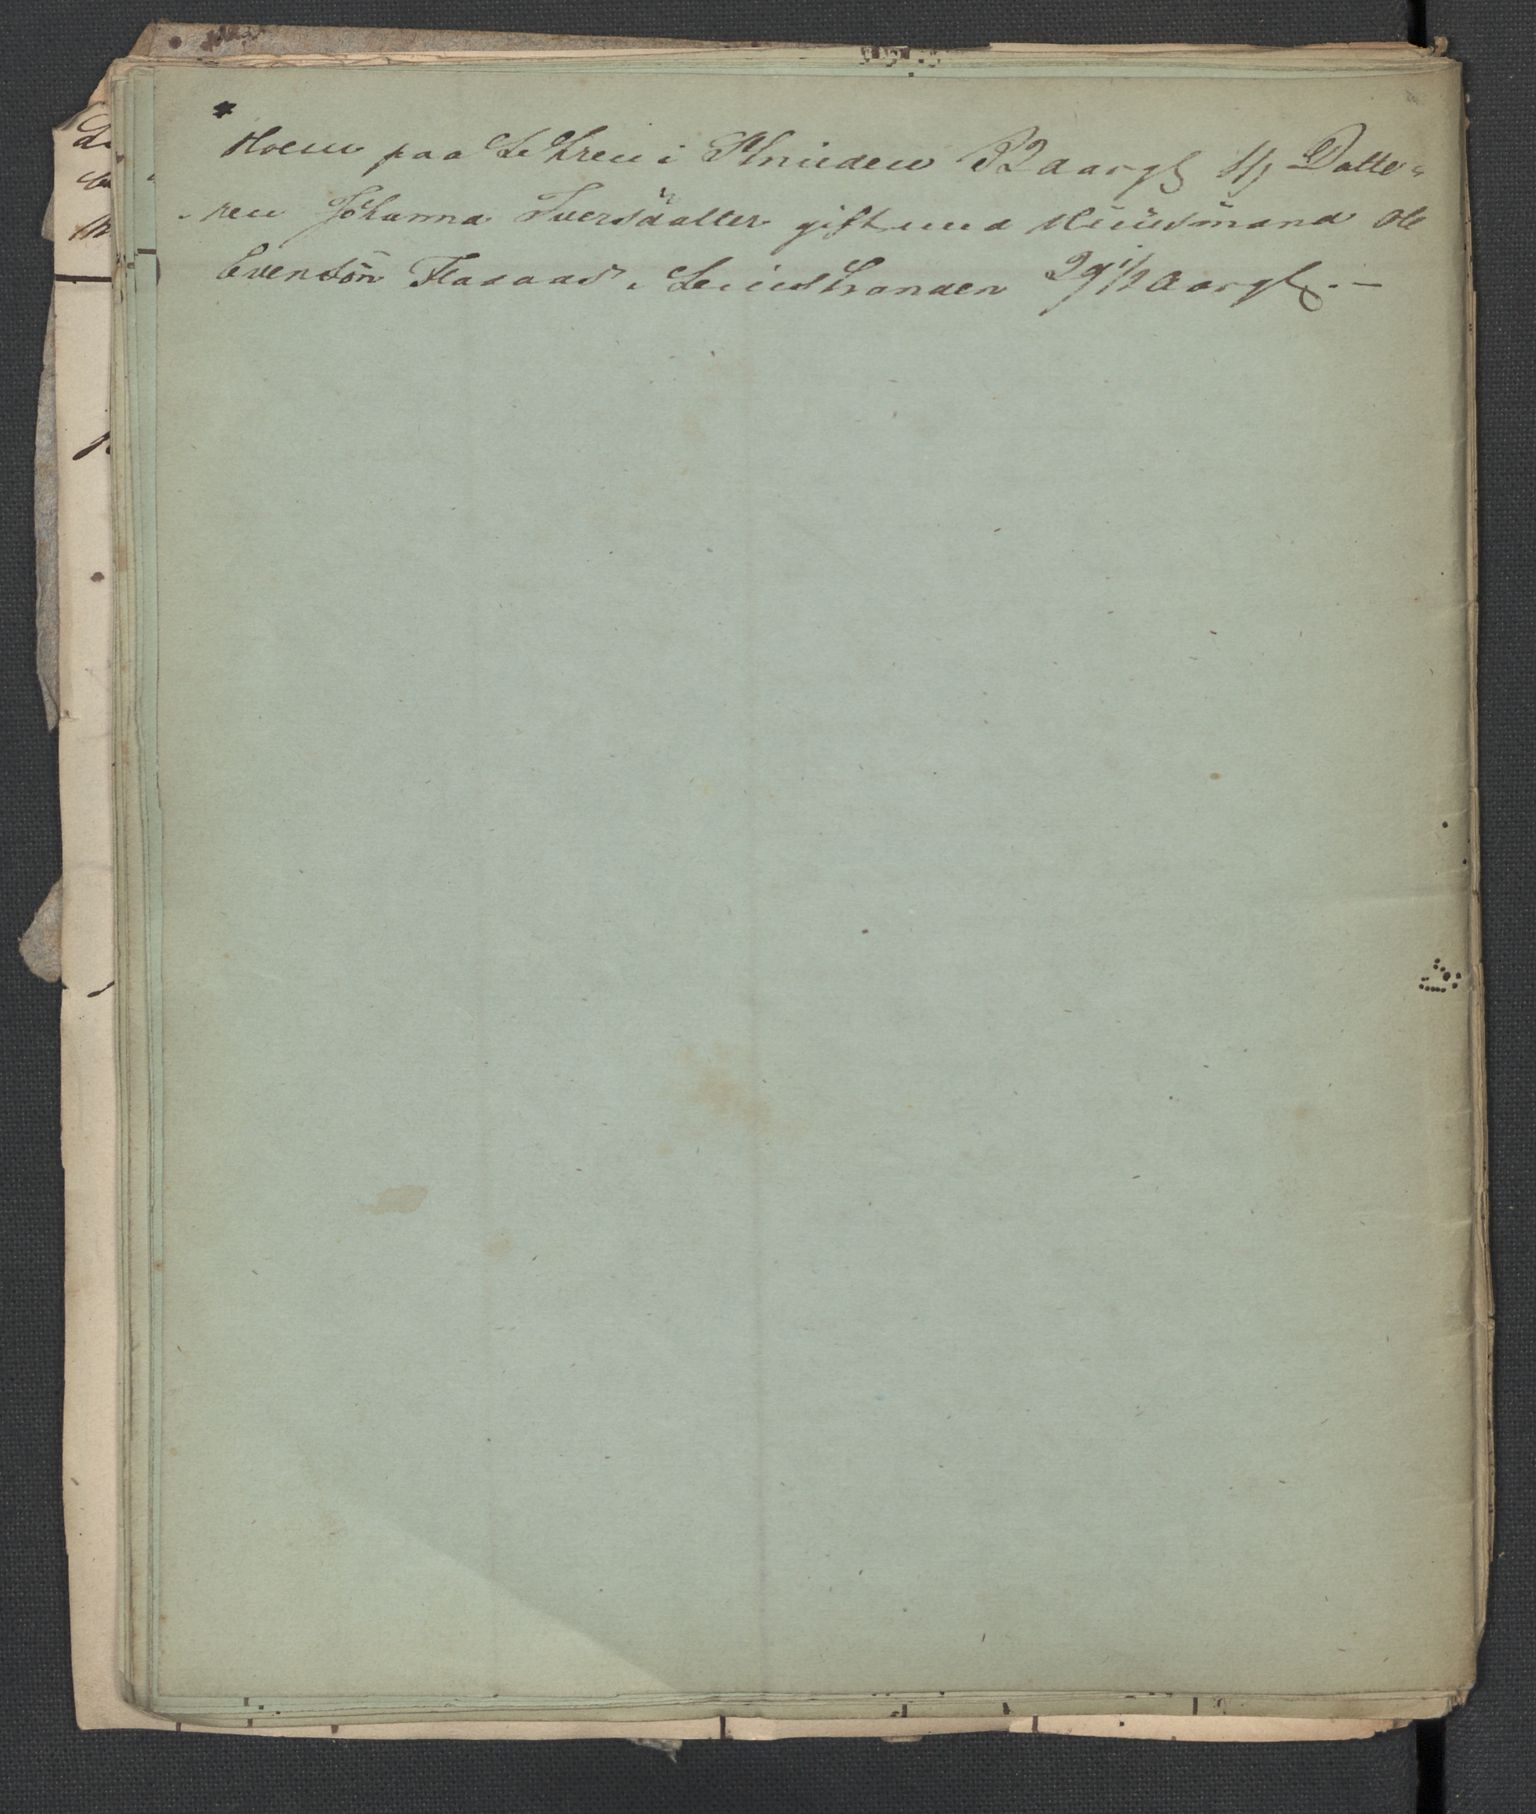 *
Moem paa Lehren i Schnieden 32 aarg 4) Datte=
ren Johanna Iversdatter gift med Huusmand Ole
Evensön Flaaaas i Leinstranden 29 1/2 Aarg. —